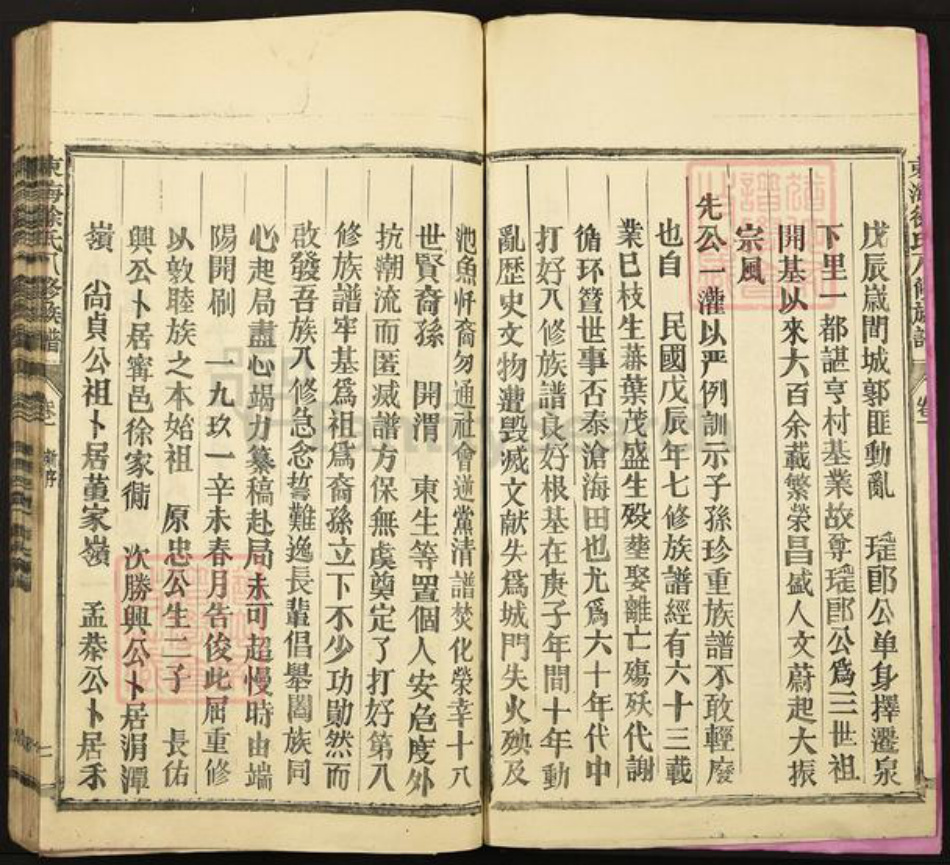 東海徐氏八修族譜 卷一
戊辰嵗間城郭匪動亂 瑤郎公单身擇遷泉
下里一都諶亨村基業故尊瑤郎公爲三世祖
開基以來六百余載繁榮昌盛人文蔚起大振
宗風
先公一灌以严例訓示子孫珍重族譜不敢輕廢
也自 民國戊辰年七修族譜經有六十三載
業已枝生蕃葉茂盛生殁塟娶離亡殤殀代謝
循环簹世事否泰滄海田也尤爲六十年代中
打好八修族譜良好根基在庚子年間十年動
亂歷史文物遭毀滅文献失爲城門失火殃及
池魚忏裔勿通社會逆黨清譜焚化榮幸十八
世賢裔孫 開渭 東生等置個人安危度外
抗潮流而匿减譜方保無虞奠定了打好第八
修族譜牢基爲祖爲裔孫立下不少功勛然而
啟發吾族八修急念誓難逸長輩倡舉闔族同
心起局盡心竭力纂稿赴局未可超慢時由端
陽開刷 一九玖一辛未春月告俊此屈重修
以敦睦族之本始祖 原忠公生二子 長佑
興公卜居寗邑徐家衕 次勝興公卜居涓潭
嶺 尙貞公祖卜居董家嶺 孟恭公卜居禾
東海徐氏八修族譜 卷一 新序